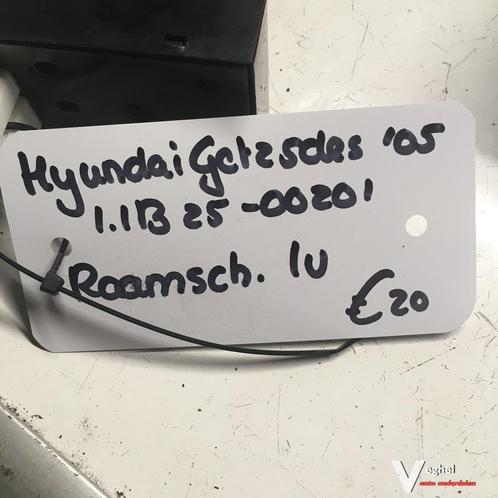 Hyundai Getz 5drs '05
1.1B 25-00201
Raamsch. lv
€20
Veghel
auto onderdelen